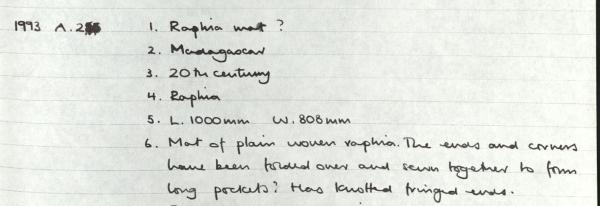 1993 A.2 1. Raphia mat ?
2. Madagascar
3. 20th century
4. Raphia
5. L. 1000mm W. 808mm
6. Mat of plain woven raphia. The ends and corners
have been folded over and sewn together to form
long pockets? Has knotted fringed ends.